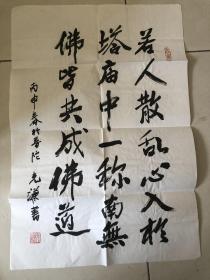 若人散乱心入於
塔庙中一称南無
佛皆共成佛道
丙申春於普陀 光谦書